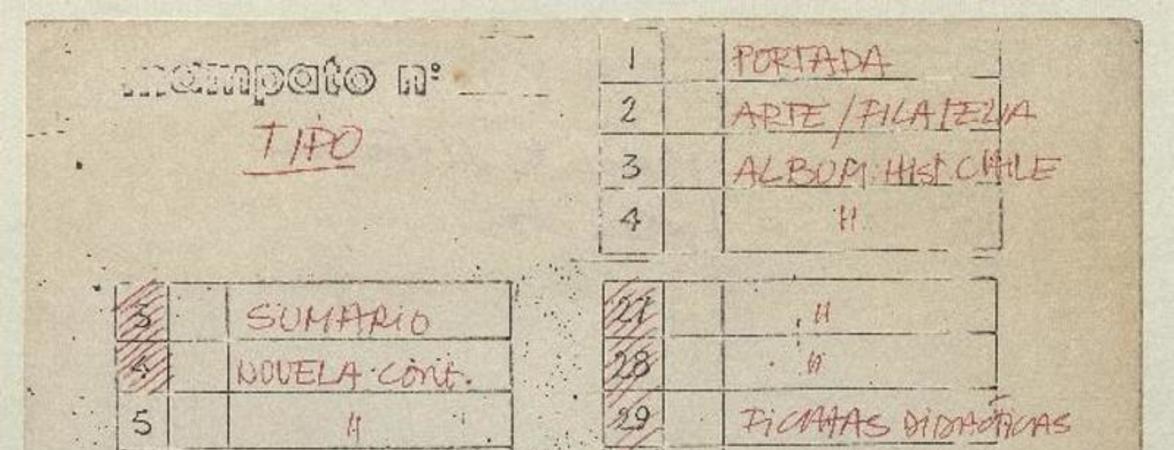 mampato nº
TIPO
1 PORTADA
2 ARTE/FILATELIA
3 ALBUM HIST. CHILE
4 "
3 SUMARIO
4 NOVELA CONT.
5 "
27 "
28 "
29 FICHAS DIDACTICAS